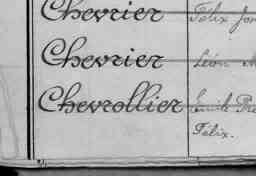 Chevrier Félix
Chevrier Léon
Chevrollier Emile
Félix.